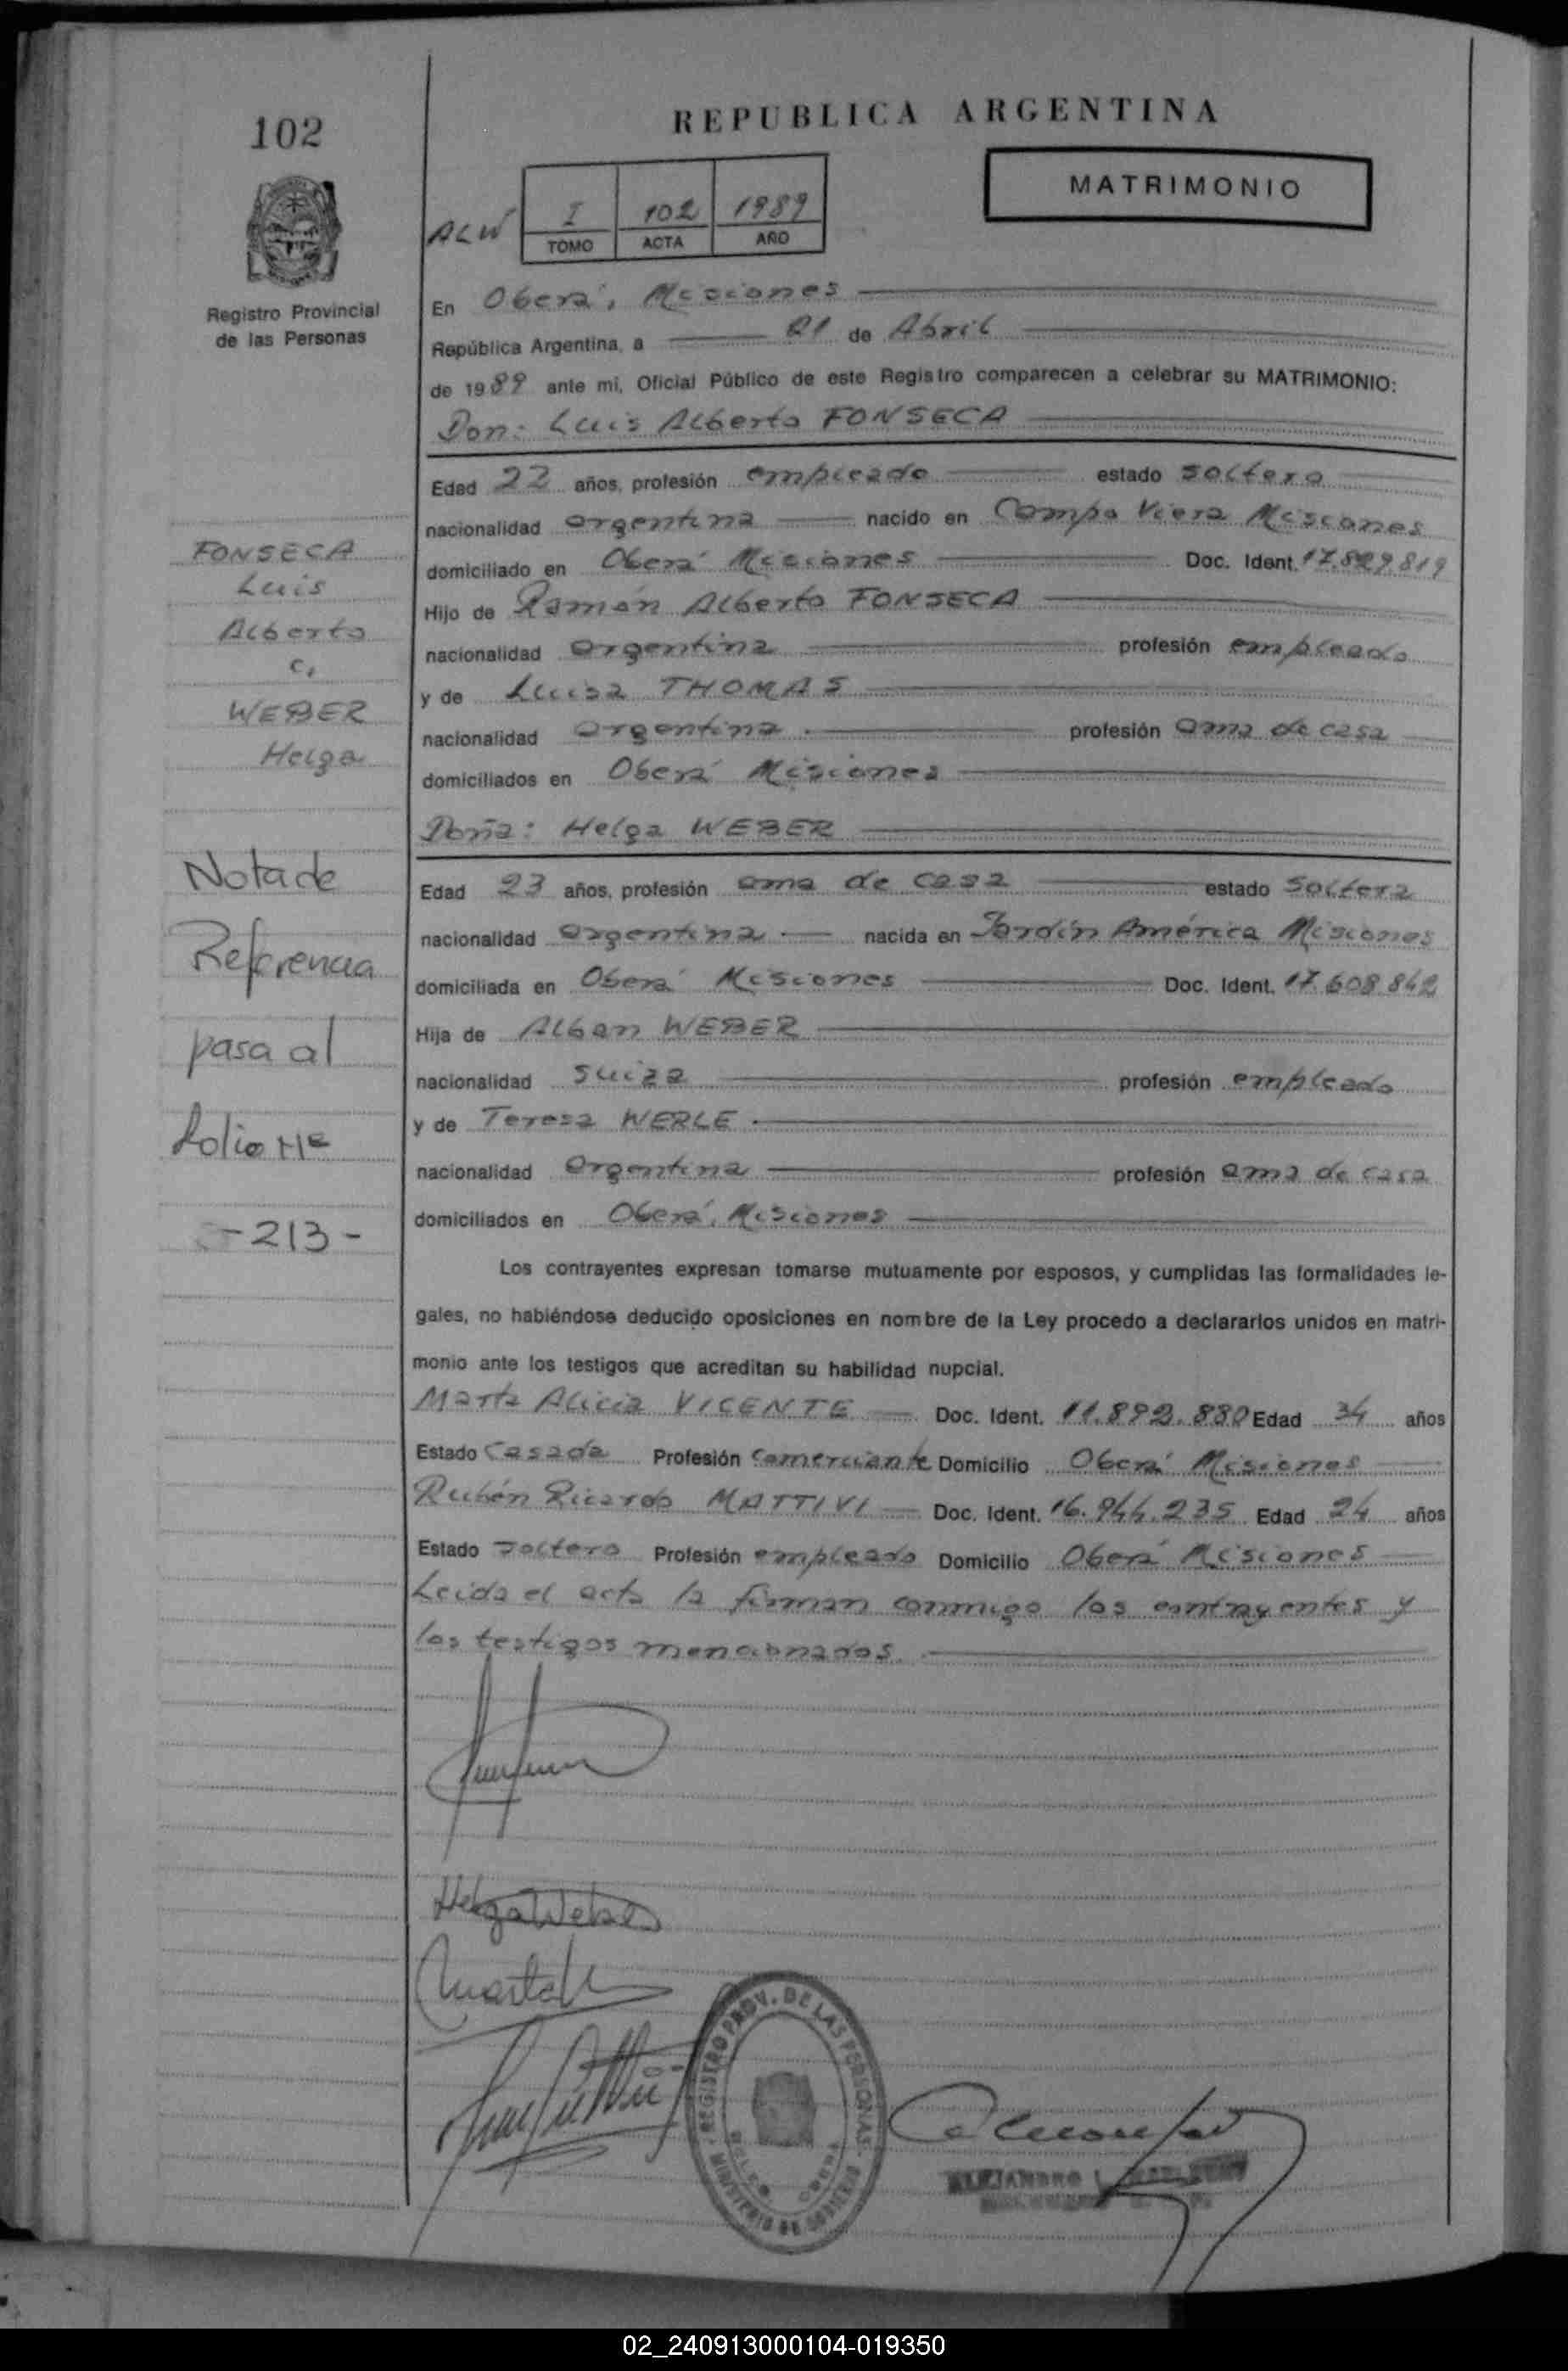 102
REPUBLICA ARGENTINA
MATRIMONIO
ALW
I 102 1989
TOMO ACTA AÑO
Registro Provincial
de las Personas
En Oberá, Misiones
República Argentina, a 21 de Abril
de 1989 ante mi, Oficial Público de este Registro comparecen a celebrar su MATRIMONIO:
Don: Luis Alberto FONSECA
Edad 22 años, profesión empleado estado soltero
nacionalidad argentina nacido en Campo Viera Misiones
domiciliado en Oberá Misiones Doc. Ident. 17.829.819
Hijo de Ramón Alberto FONSECA
nacionalidad argentina profesión empleado
y de Luisa THOMAS
nacionalidad argentina profesión ama de casa
domiciliados en Oberá Misiones
Doña: Helga WEBER
Edad 23 años, profesión ama de casa estado soltera
nacionalidad argentina nacida en Jardín América Misiones
domiciliada en Oberá Misiones Doc. Ident. 17.608.842
Hija de Alban WEBER
nacionalidad suiza profesión empleado
y de Teresa WERLE
nacionalidad argentina profesión ama de casa
domiciliados en Oberá, Misiones
Los contrayentes expresan tomarse mutuamente por esposos, y cumplidas las formalidades le-
gales, no habiéndose deducido oposiciones en nombre de la Ley procedo a declararlos unidos en matri-
monio ante los testigos que acreditan su habilidad nupcial.
Marta Alicia VICENTE Doc. Ident. 11.892.880 Edad 34 años
Estado Casada Profesión Comerciante Domicilio Oberá Misiones
Rubén Ricardo MATTIVI Doc. Ident. 16.944.235 Edad 24 años
Estado soltero Profesión empleado Domicilio Oberá Misiones
Leida el acta la firman conmigo los contrayentes y
los testigos mencionados.
FONSECA
Luis
Alberto
c.
WEBER
Helga
Nota de
Referencia
pasa al
folio Nº
-213-
Helga Weber
REGISTRO PROV. DE LAS PERSONAS
MINISTERIO DE GOBIERNO
ALEJANDRO
02_240913000104-019350